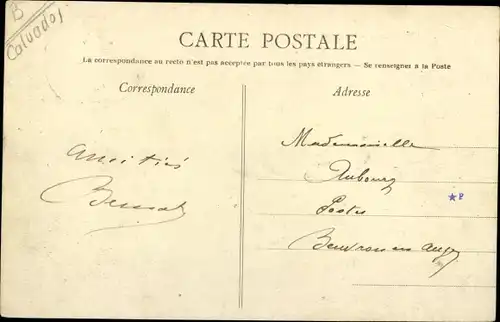 B
Calvados
CARTE POSTALE
La correspondance au recto n'est pas acceptée par tous les pays étrangers — Se renseigner à la Poste
Correspondance
Adresse
Mademoiselle
Amitiés
Aubourg
Postes
★P
Beuvron en Auge